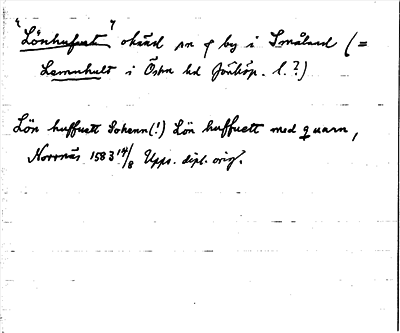 "Lönhufuett" okänd sn o by i Småland (=
Lemnhult i Östra hd Jönköp. l.?)
Lön huffuett Sokenn(!) Lön huffuett med quarn,
Norrnäs 1583 14/8 Upps. dipl. orig.